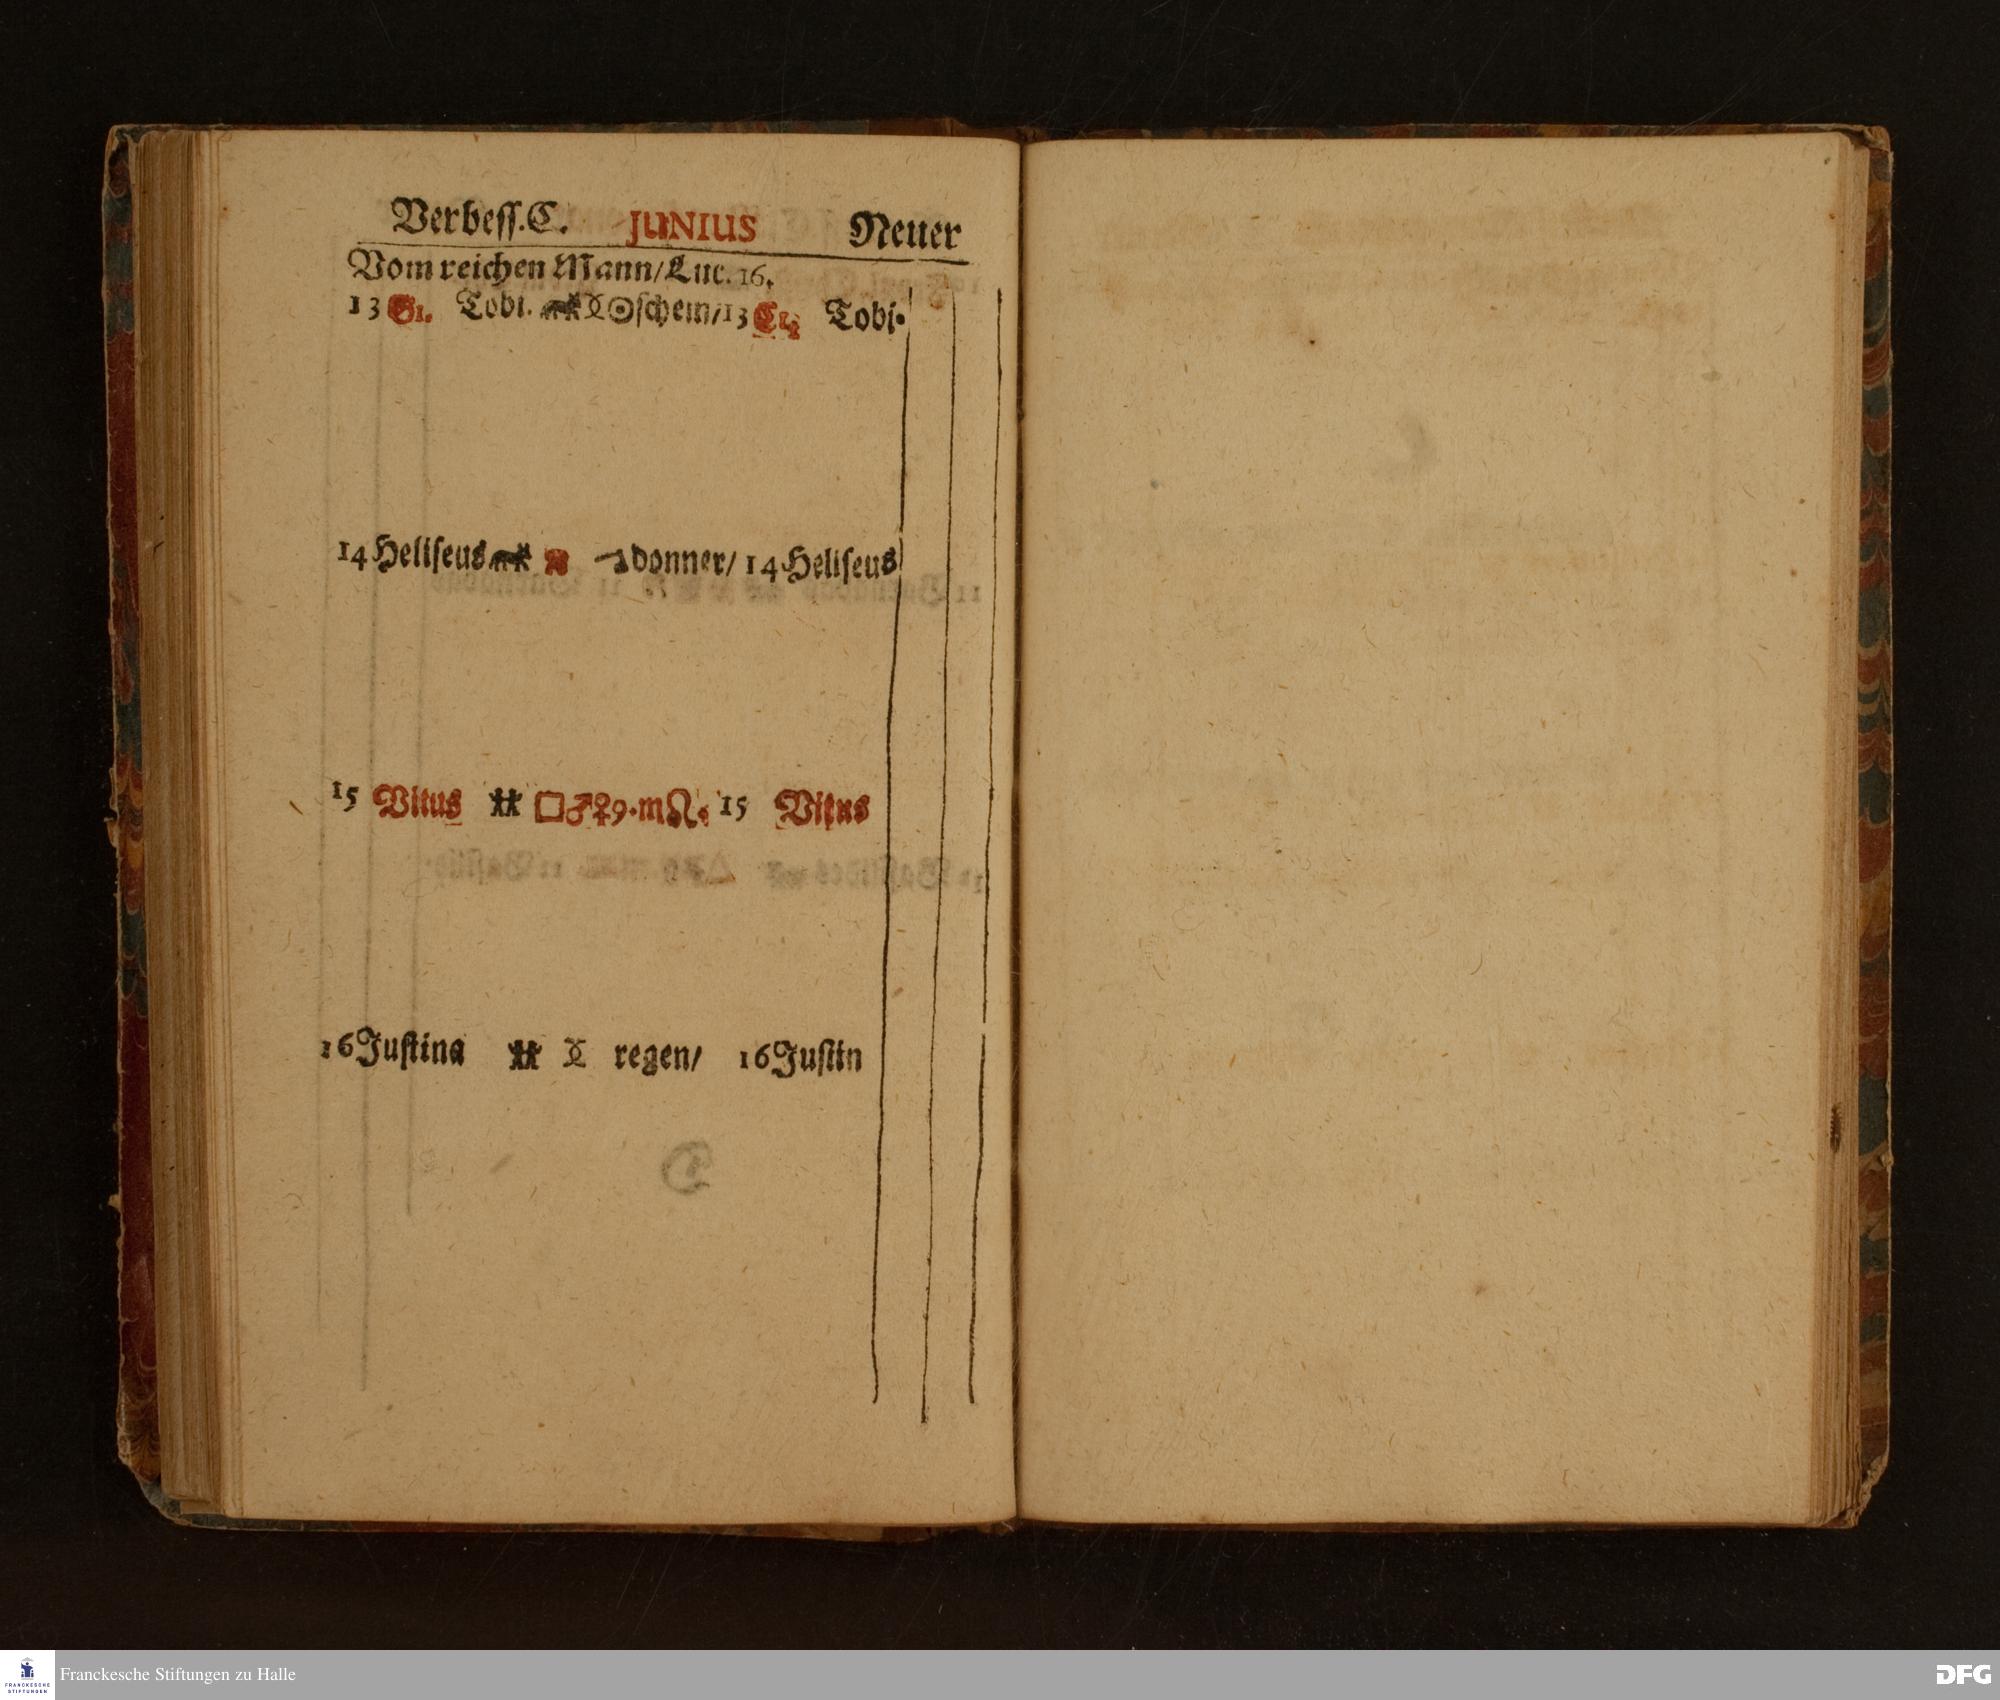 Verbeſſ. C. JUNIUS Neuer
Vom reichen Mann/Luc. 16.
13 G1. Tobi. ☉ſchein/ 13 Tobi.
14 Heliſeus donner/ 14 Heliſeus
15 Vitus □♂♀9.m☊. 15 Vitus
16 Juſtina regen/ 16 Juſtin
Franckesche Stiftungen zu Halle
FRANCKESCHE
STIFTUNGEN
DFG